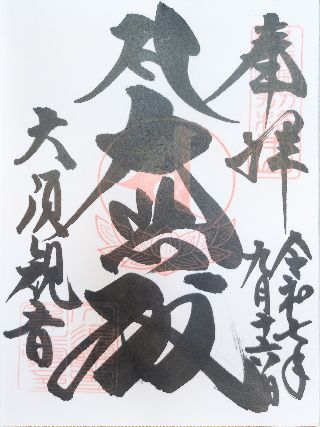 奉拝
令和七年
九月十六日
大悲殿
大須観音